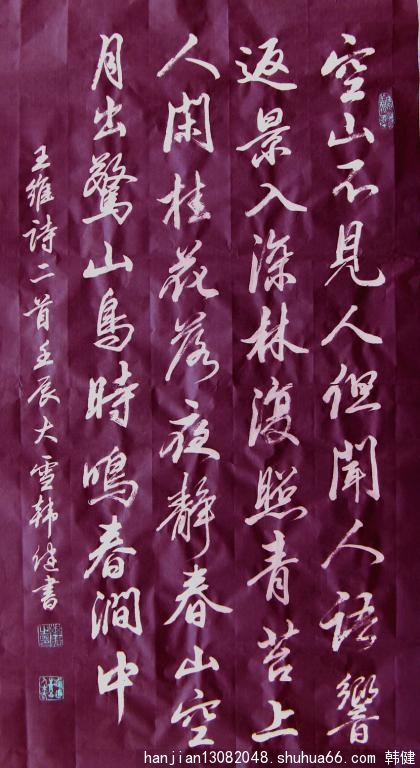 空山不見人但聞人語響
返景入深林復照青苔上
人閑桂花落夜靜春山空
月出驚山鳥時鳴春澗中
王維詩二首壬辰大雪韩健書
hanjian13082048.shuhua66.com 韩健